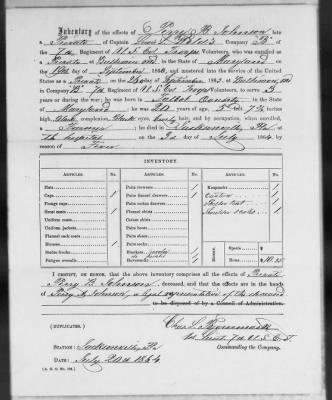 Inventory of the effects of Perry B. Johnson late
a Private of Captain Company "B" of the
7th Regiment of U.S. Col Troops Volunteers, who was enrolled as
a Private at Baltimore in the State of Maryland
on the day of September 186 , and mustered into the service of the United States
as a Private on the of September 1863, at Baltimore Md
in Company "B" 7th Regiment of U.S. Col Troops Volunteers, to serve 3
years or during the war; he was born in Talbot County in the State of
Maryland he was years of age, feet inches
high, complexion, eyes, hair, and by occupation, when enrolled,
a Farmer; he died in Jacksonville Fla
at Hospital on the day of July 1864, by
reason of Fever
INVENTORY.
ARTICLES. No. ARTICLES. No. ARTICLES. No.
Hats
Caps
Forage caps
Great coats
Uniform coats
Uniform jackets
Flannel sack coats
Blouses
Stable frocks
Fatigue overalls
Pairs trowsers
Pairs flannel drawers
Pairs cotton drawers
Flannel shirts
Cotton shirts
Pairs shoes
Pairs socks
Blankets
Haversacks
Knapsacks
Canteen
Shelter tent
Shoulder scales
Specie $
Notes $
I CERTIFY, ON HONOR, that the above inventory comprises all the effects of Private
Perry B. Johnson, deceased, and that the effects are in the hands
of a legal representative of the deceased
to be disposed of by a Council of Administration.
(DUPLICATES.)
1st Lieut 7th U.S.C.T.
Commanding the Company.
STATION: Jacksonville, Fla
DATE: July 1864